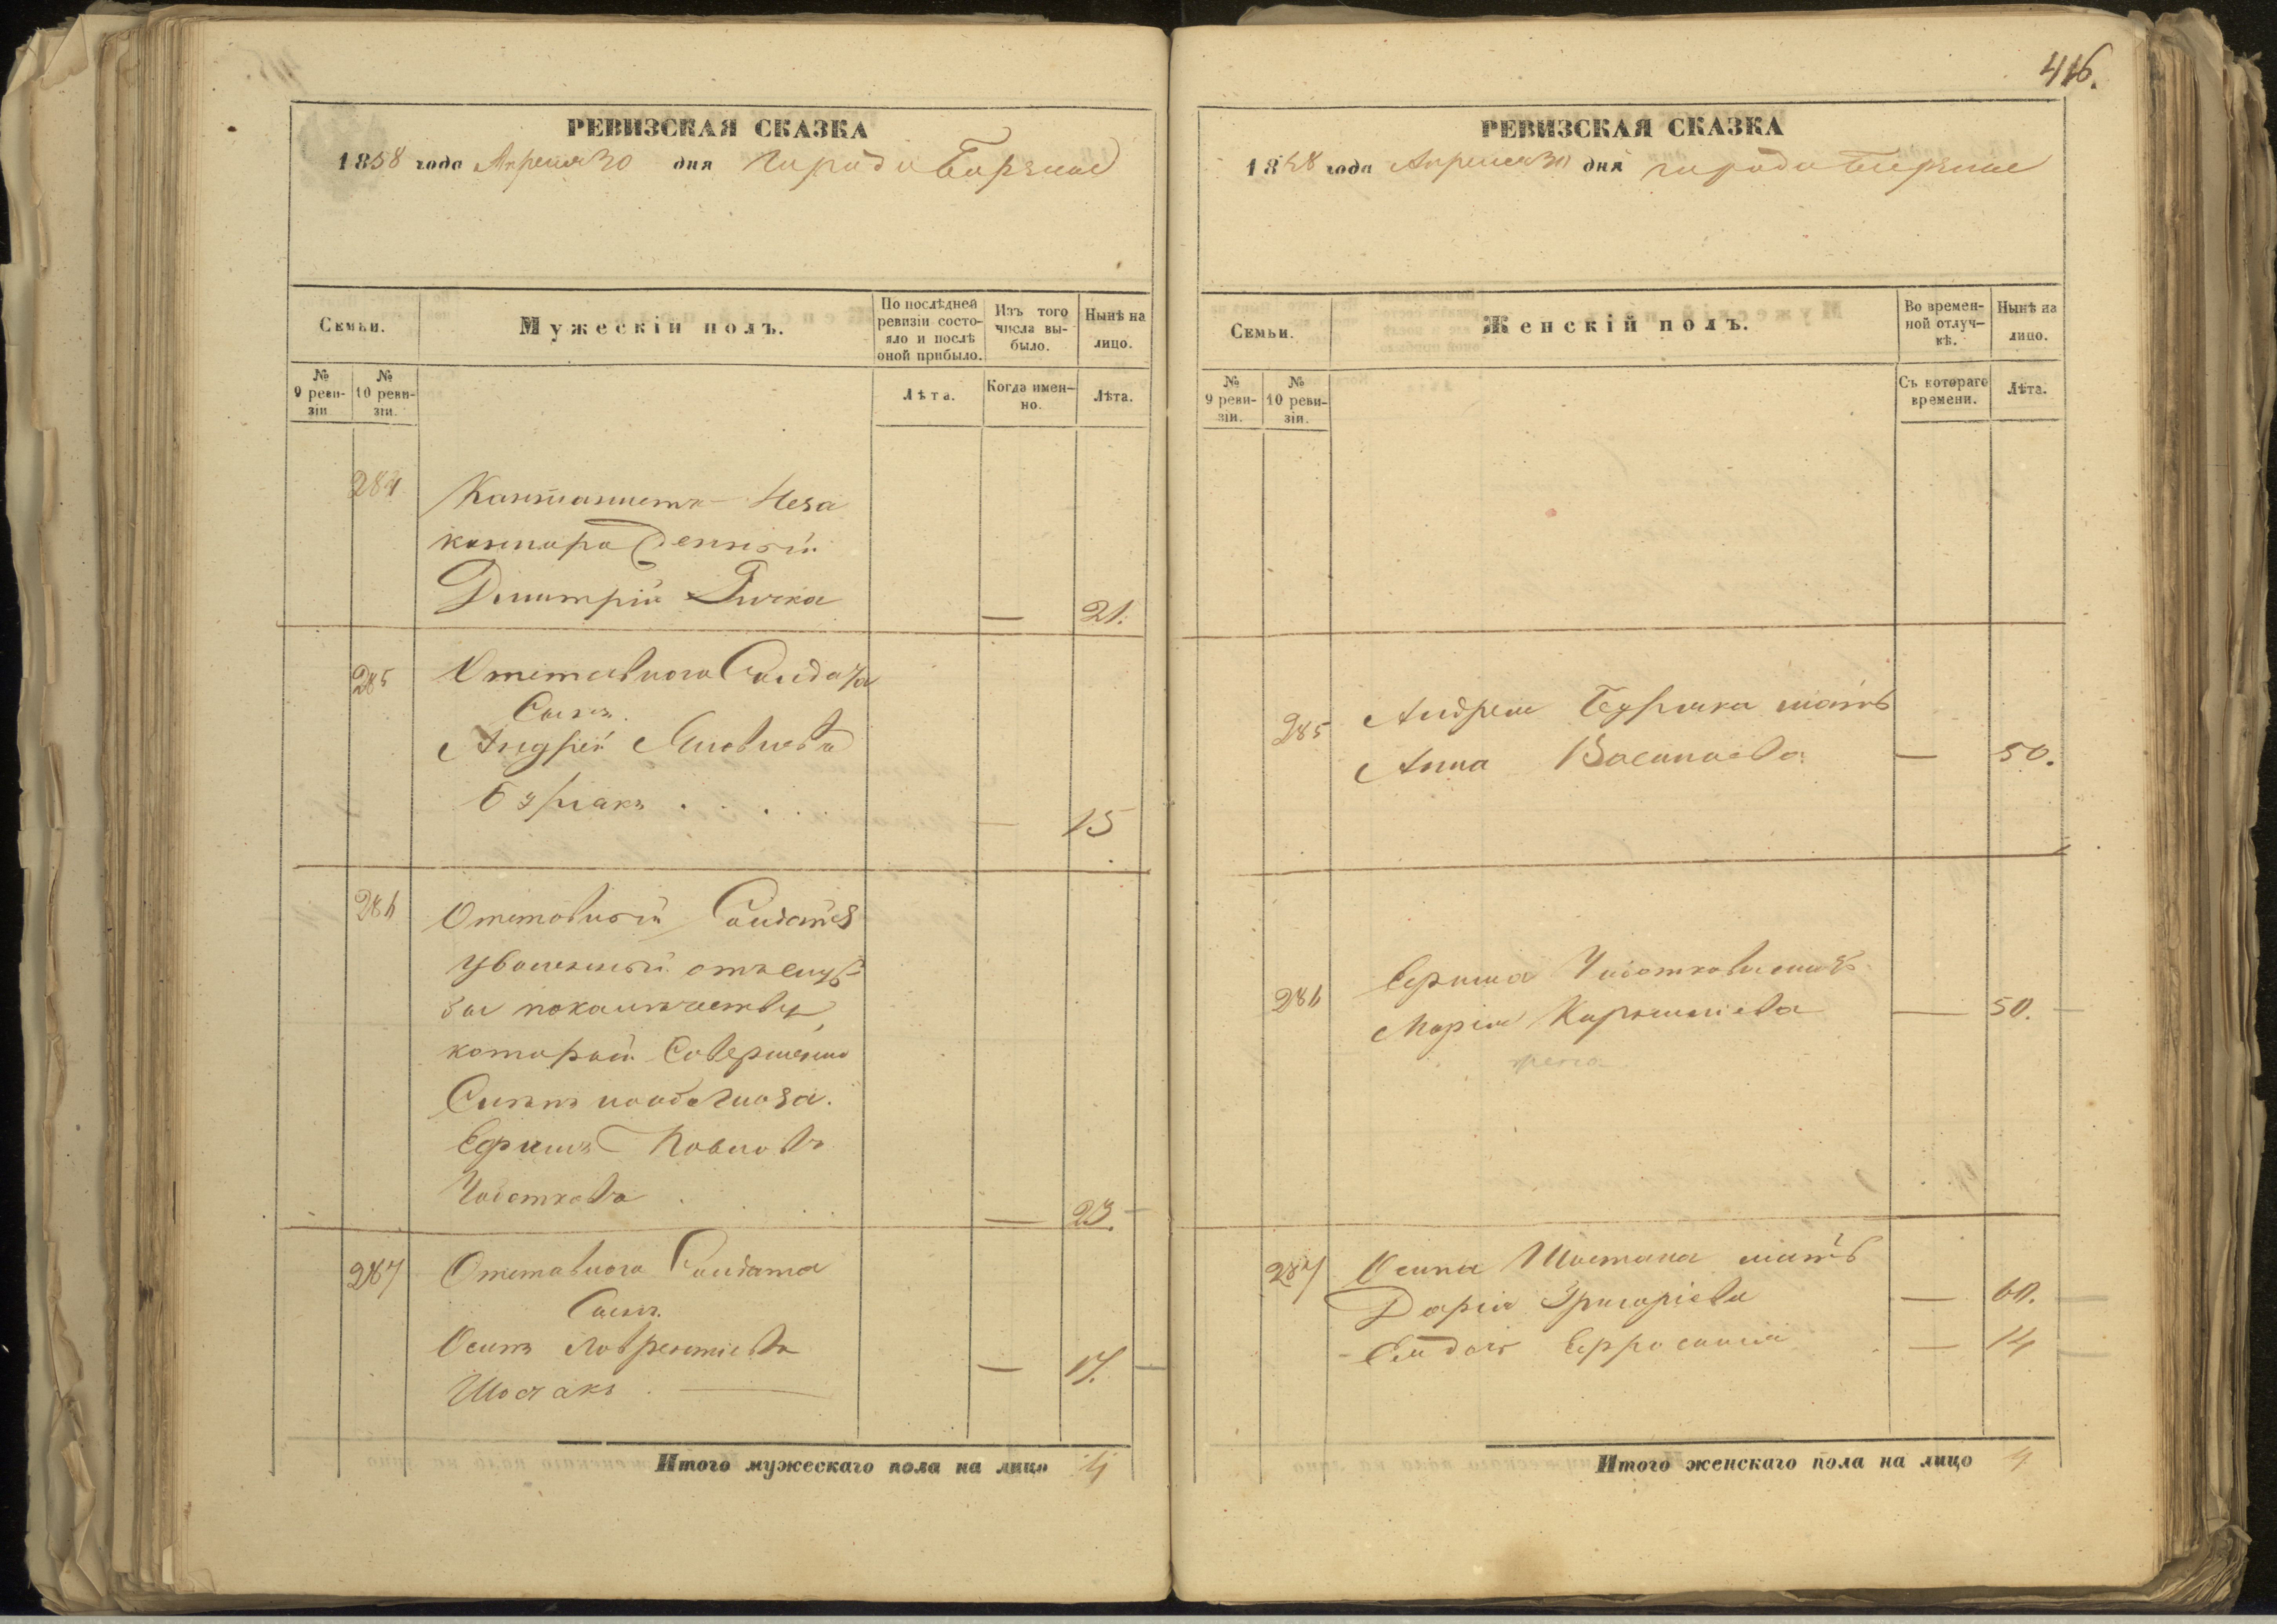 416.
РЕВИЗСКАЯ СКАЗКА
1858 года Апреля 30 дня города Борзны
Семьи.
Мужескій полъ.
По послѣдней ревизіи состояло и послѣ оной прибыло.
Изъ того числа выбыло.
Нынѣ на лицо.
№ 9 ревизіи
№ 10 ревизіи.
Лѣта.
Когда именно.
Лѣта.
284
Кантонистъ Неза
коннорожденный
Дмитрій
— 21.
285
Отставного Солдата
Сынъ
Андрей Яковлевъ
Бурлакъ
— 15
286
Отставный Солдатъ
уволенный отъ служ
бы
который Совершенно
Ефимъ Павловъ
Чеботковъ
— 23.
287
Отставного Солдата
Сынъ
Осипъ Лаврентіевъ
Шостакъ
— 17.
Итого мужескаго пола на лицо 4
РЕВИЗСКАЯ СКАЗКА
1858 года Апреля 30 дня города Борзны
Семьи.
Женскій полъ.
Во временной отлучкѣ.
Нынѣ на лицо.
№ 9 ревизіи.
№ 10 ревизіи.
Съ котораго времени.
Лѣта.
285
Андрея Бурлака мать
Анна Васильева — 50.
286
Ефима
Марія — 50.
287
Осипа Шостака мать
Дарія Григоріева — 60.
Ефросинія — 14
Итого женскаго пола на лицо 4